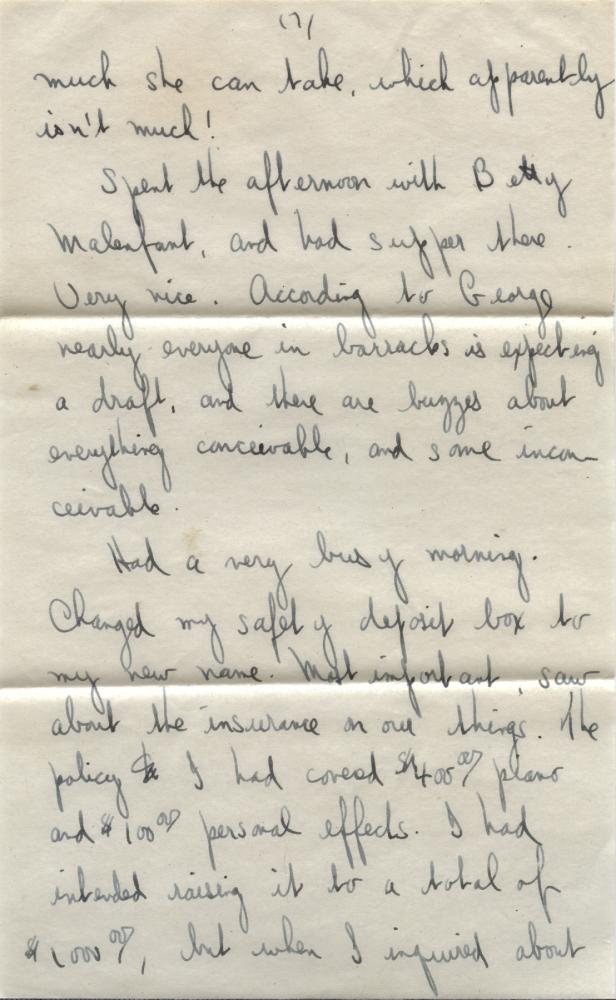 (7)
much she can take, which apparently
isn't much!
Spent the afternoon with Betty
Malenfant, and had supper there.
Very nice. According to George
nearly everyone in barracks is expecting
a draft, and there are buzzes about
everything conceivable, and some incon-
ceivable.
Had a very busy morning.
Changed my safety deposit box to
my new name. Most important, saw
about the insurance on our things. The
policy I had covered $400.00 piano
and $100.00 personal effects. I had
intended raising it to a total of
$1000.00, but when I inquired about